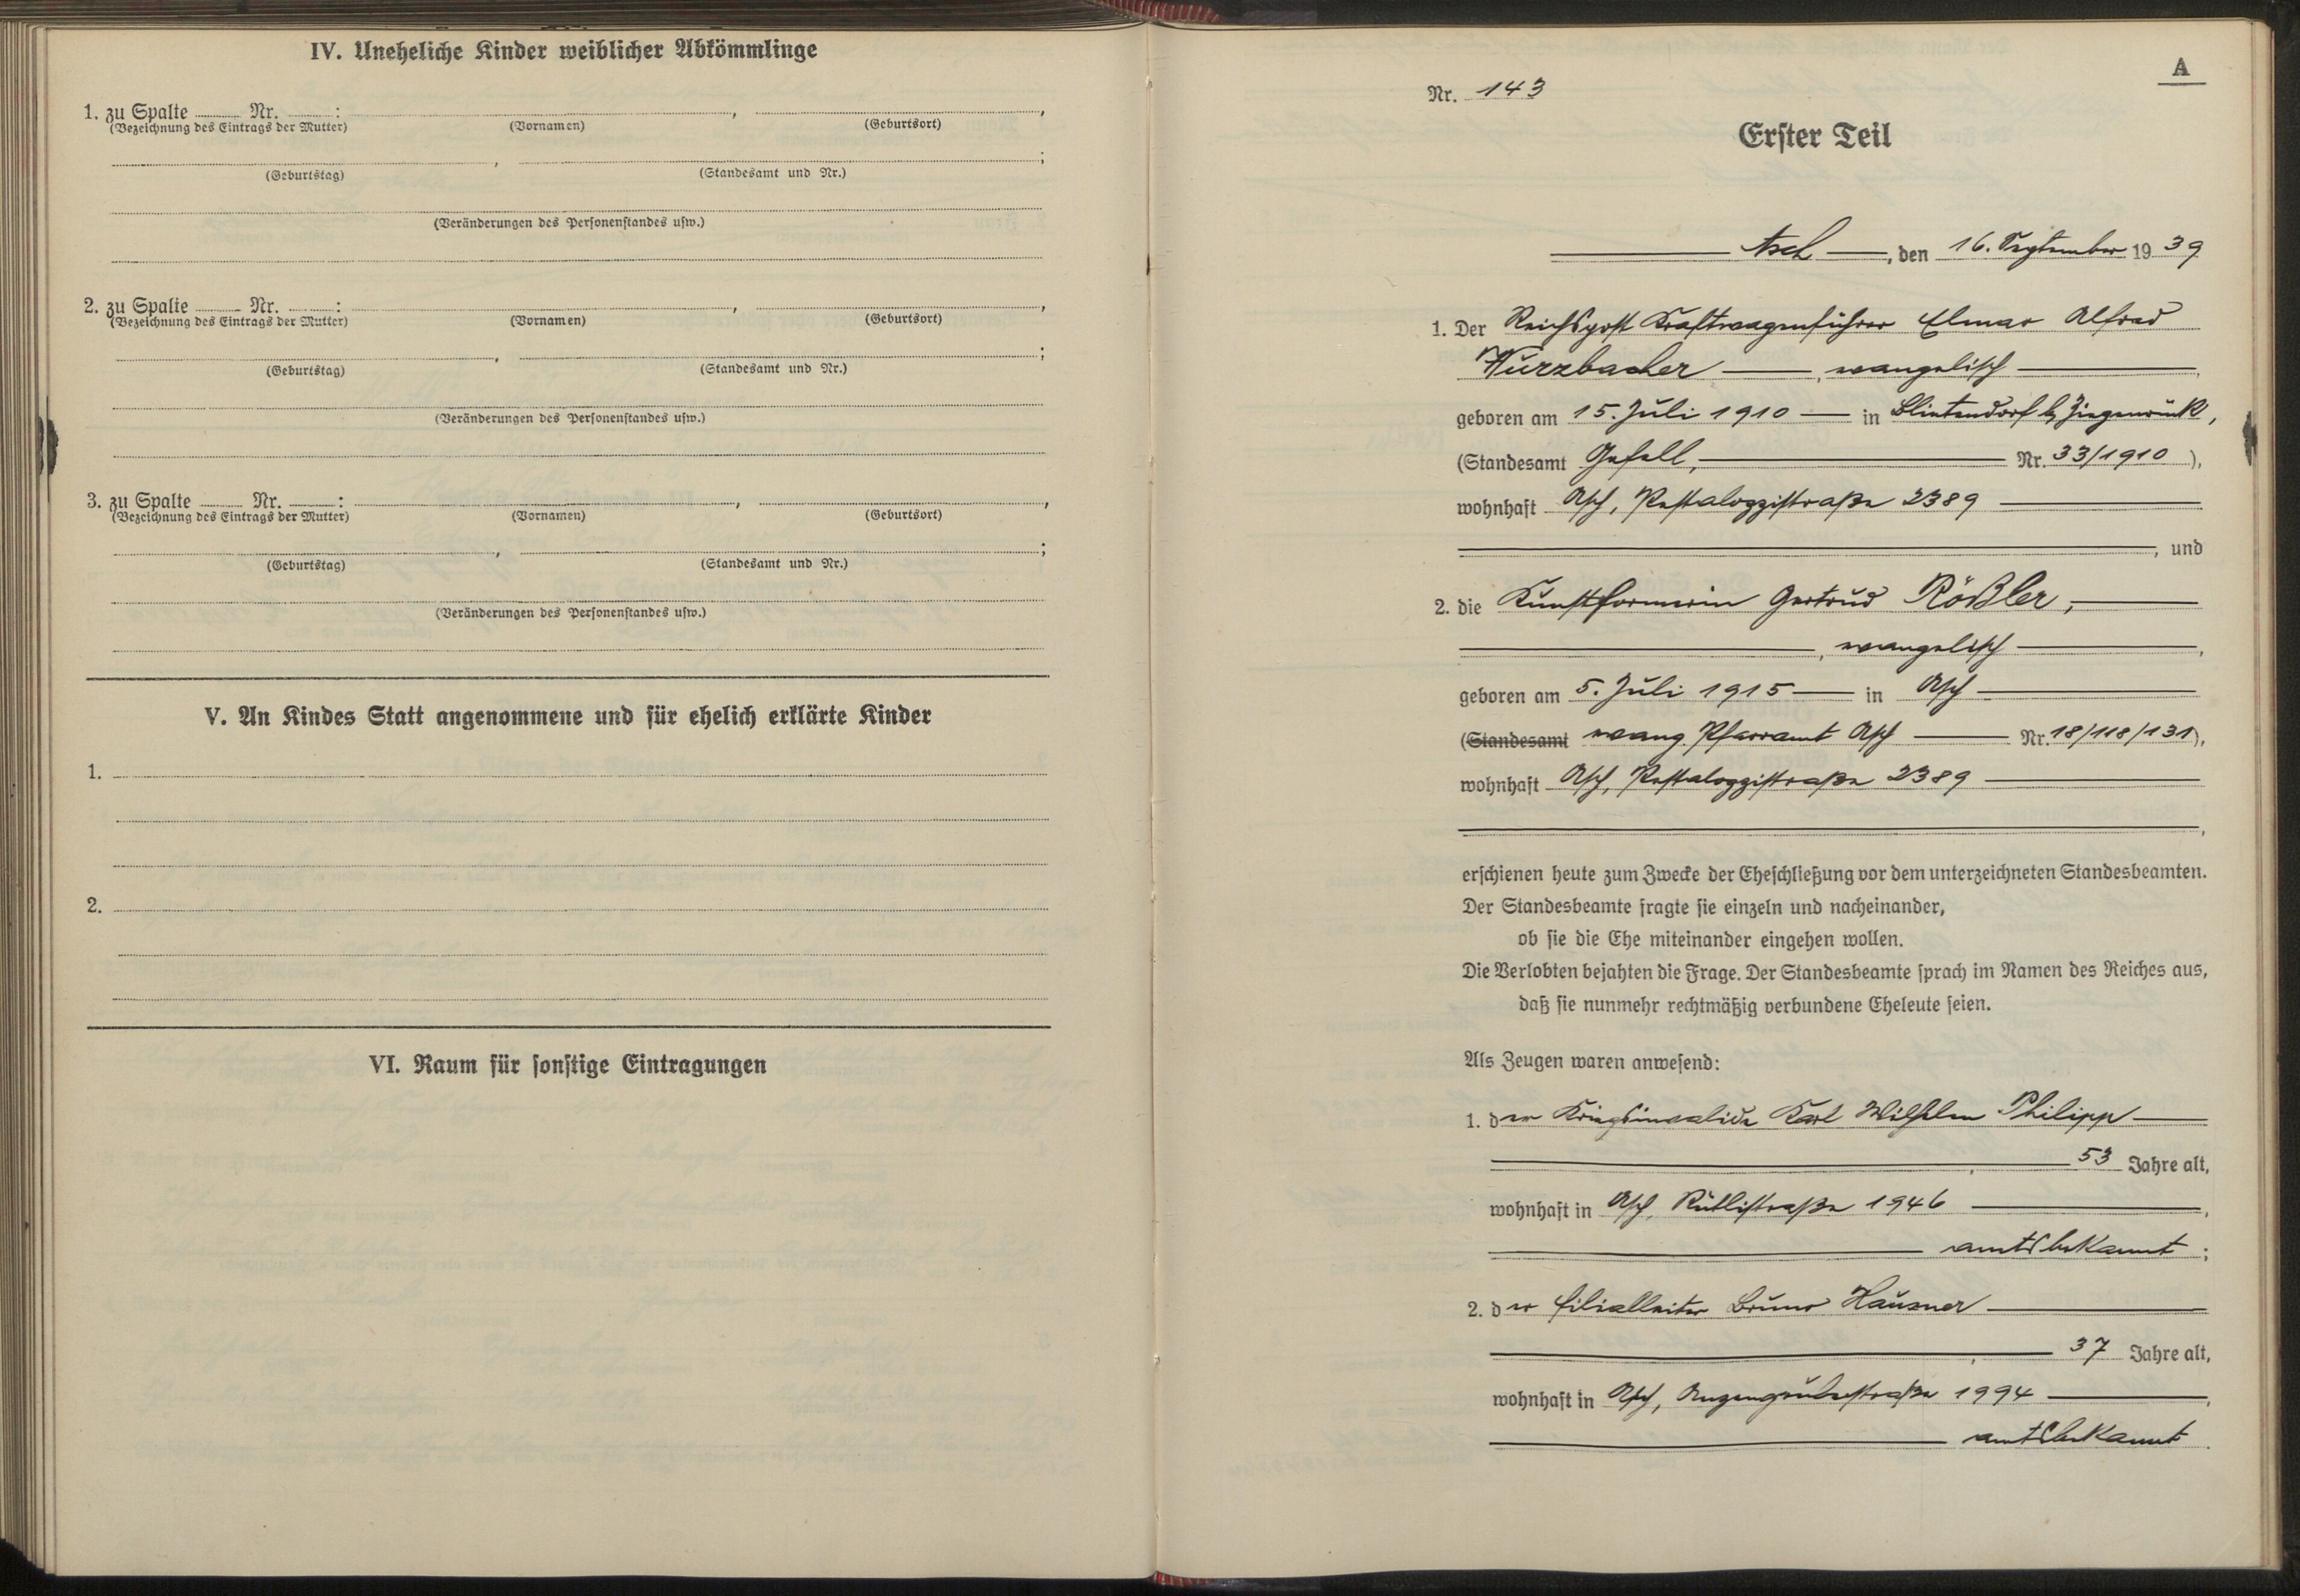 IV. Uneheliche Kinder weiblicher Abkömmlinge
1. zu Spalte Nr. :
(Bezeichnung des Eintrags der Mutter) (Vornamen) (Geburtsort)
(Geburtstag) (Standesamt und Nr.)
(Veränderungen des Personenstandes usw.)
2. zu Spalte Nr. :
(Bezeichnung des Eintrags der Mutter) (Vornamen) (Geburtsort)
(Geburtstag) (Standesamt und Nr.)
(Veränderungen des Personenstandes usw.)
3. zu Spalte Nr. :
(Bezeichnung des Eintrags der Mutter) (Vornamen) (Geburtsort)
(Geburtstag) (Standesamt und Nr.)
(Veränderungen des Personenstandes usw.)
V. An Kindes Statt angenommene und für ehelich erklärte Kinder
1.
2.
VI. Raum für sonstige Eintragungen
A
Nr. 143
Erster Teil
Asch, den 16. September 1939
1. Der Reichspost Kraftwagenführer Elmar Alfred
Wurzbacher, evangelisch,
geboren am 15. Juli 1910 in Blintendorf b. Ziegenrück,
(Standesamt Gefell, Nr. 33/1910),
wohnhaft Asch, Pestalozzistraße 2389
, und
2. die Kunstformerin Gertrud Rößler,
, evangelisch,
geboren am 5. Juli 1915 in Asch
(Standesamt evang Pfarramt Asch Nr. 18/118/131),
wohnhaft Asch, Pestalozzistraße 2389
,
erschienen heute zum Zwecke der Eheschließung vor dem unterzeichneten Standesbeamten.
Der Standesbeamte fragte sie einzeln und nacheinander,
ob sie die Ehe miteinander eingehen wollen.
Die Verlobten bejahten die Frage. Der Standesbeamte sprach im Namen des Reiches aus,
daß sie nunmehr rechtmäßig verbundene Eheleute seien.
Als Zeugen waren anwesend:
1. der Kriegsinvalide Karl Wilhelm Philipp
, 53 Jahre alt,
wohnhaft in Asch, Rütlistraße 1946,
amtsbekannt;
2. der Filialleiter Bruno Hausner
, 37 Jahre alt,
wohnhaft in Asch, Anzengruberstraße 1994,
amtsbekannt.